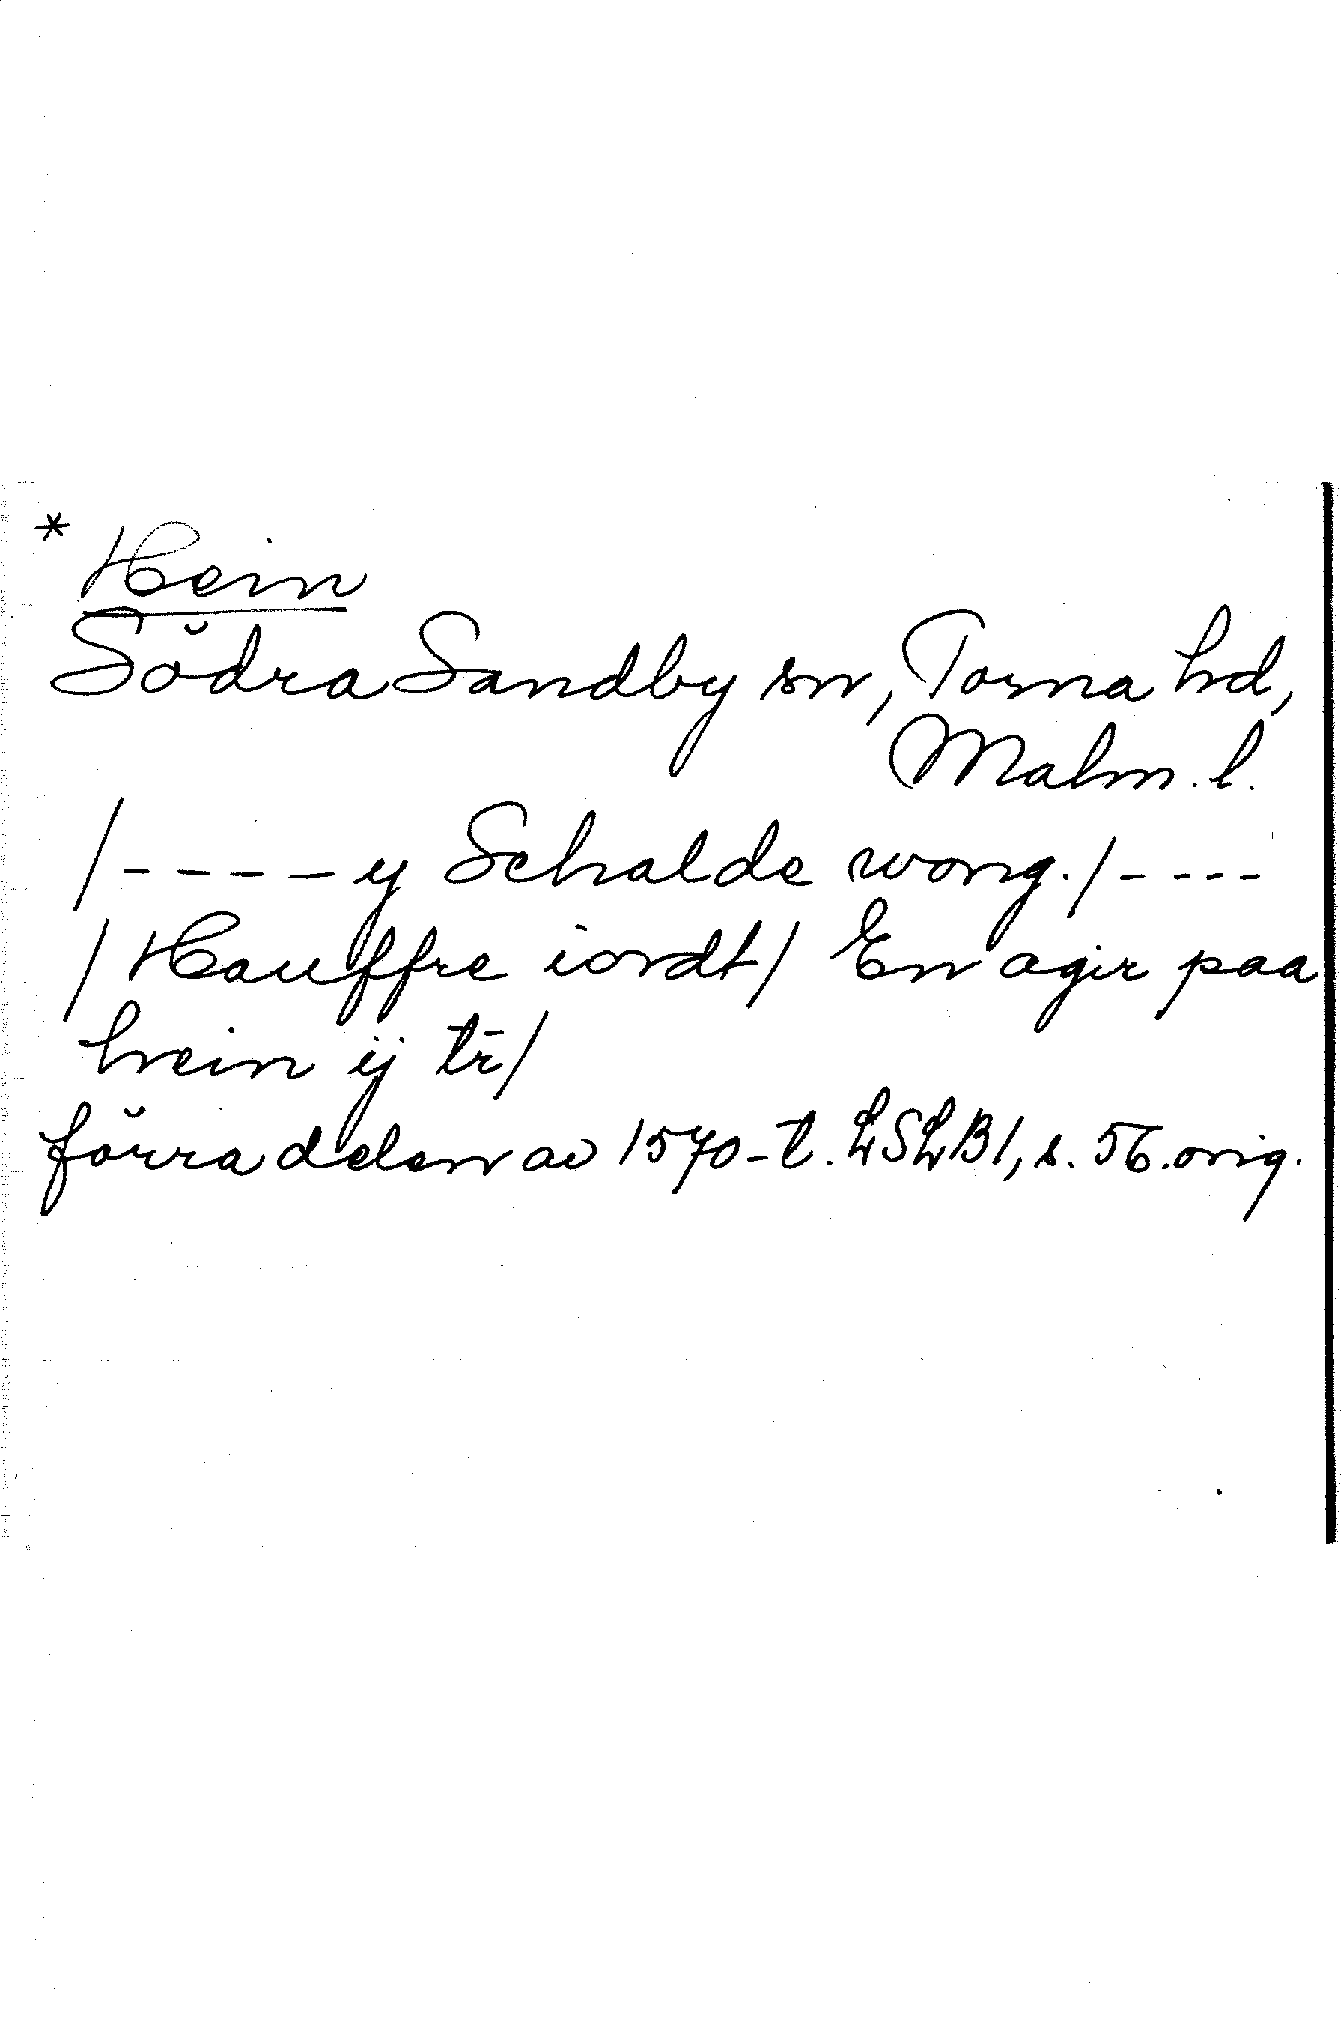 * Hein
Södra Sandby sn, Torna hd,
Malm. l.
/-----y Schalde wong./----
/Hauffre iordt/ En agir paa
hein ij tr̄/
förra delen av 1570-t. LSLB1, s. 56. orig.